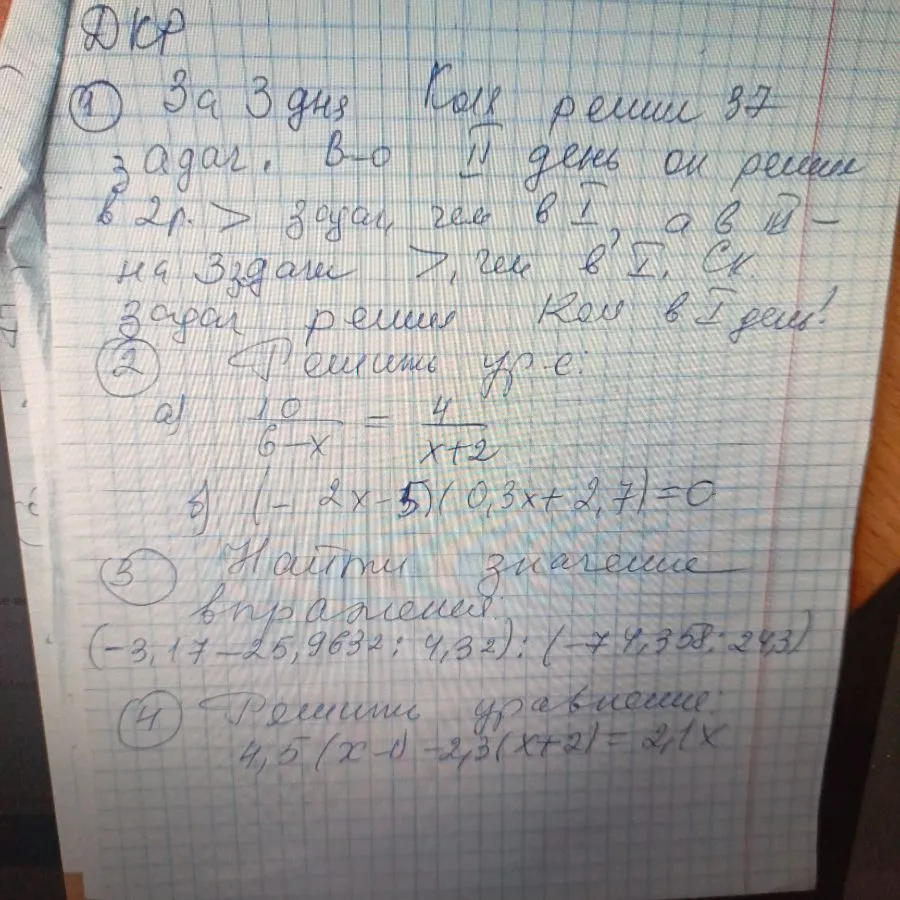 ДКР
① За 3 дня Коля решил 37
задач. В-о II день он решил
в 2р. > задач, чем в I, а в III -
на 3 здачи >, чем в I. Ск
задач решил Коля в I день?
② Решить ур-е:
а) 10/(6-x) = 4/(x+2)
б) (-2x-5)(0,3x+2,7)=0
③ Найти значение
выражения:
(-3,17-25,9632:4,32):(-74,358:24,3)
④ Решити уравнение:
4,5(x-1)-2,3(x+2)=2,1x